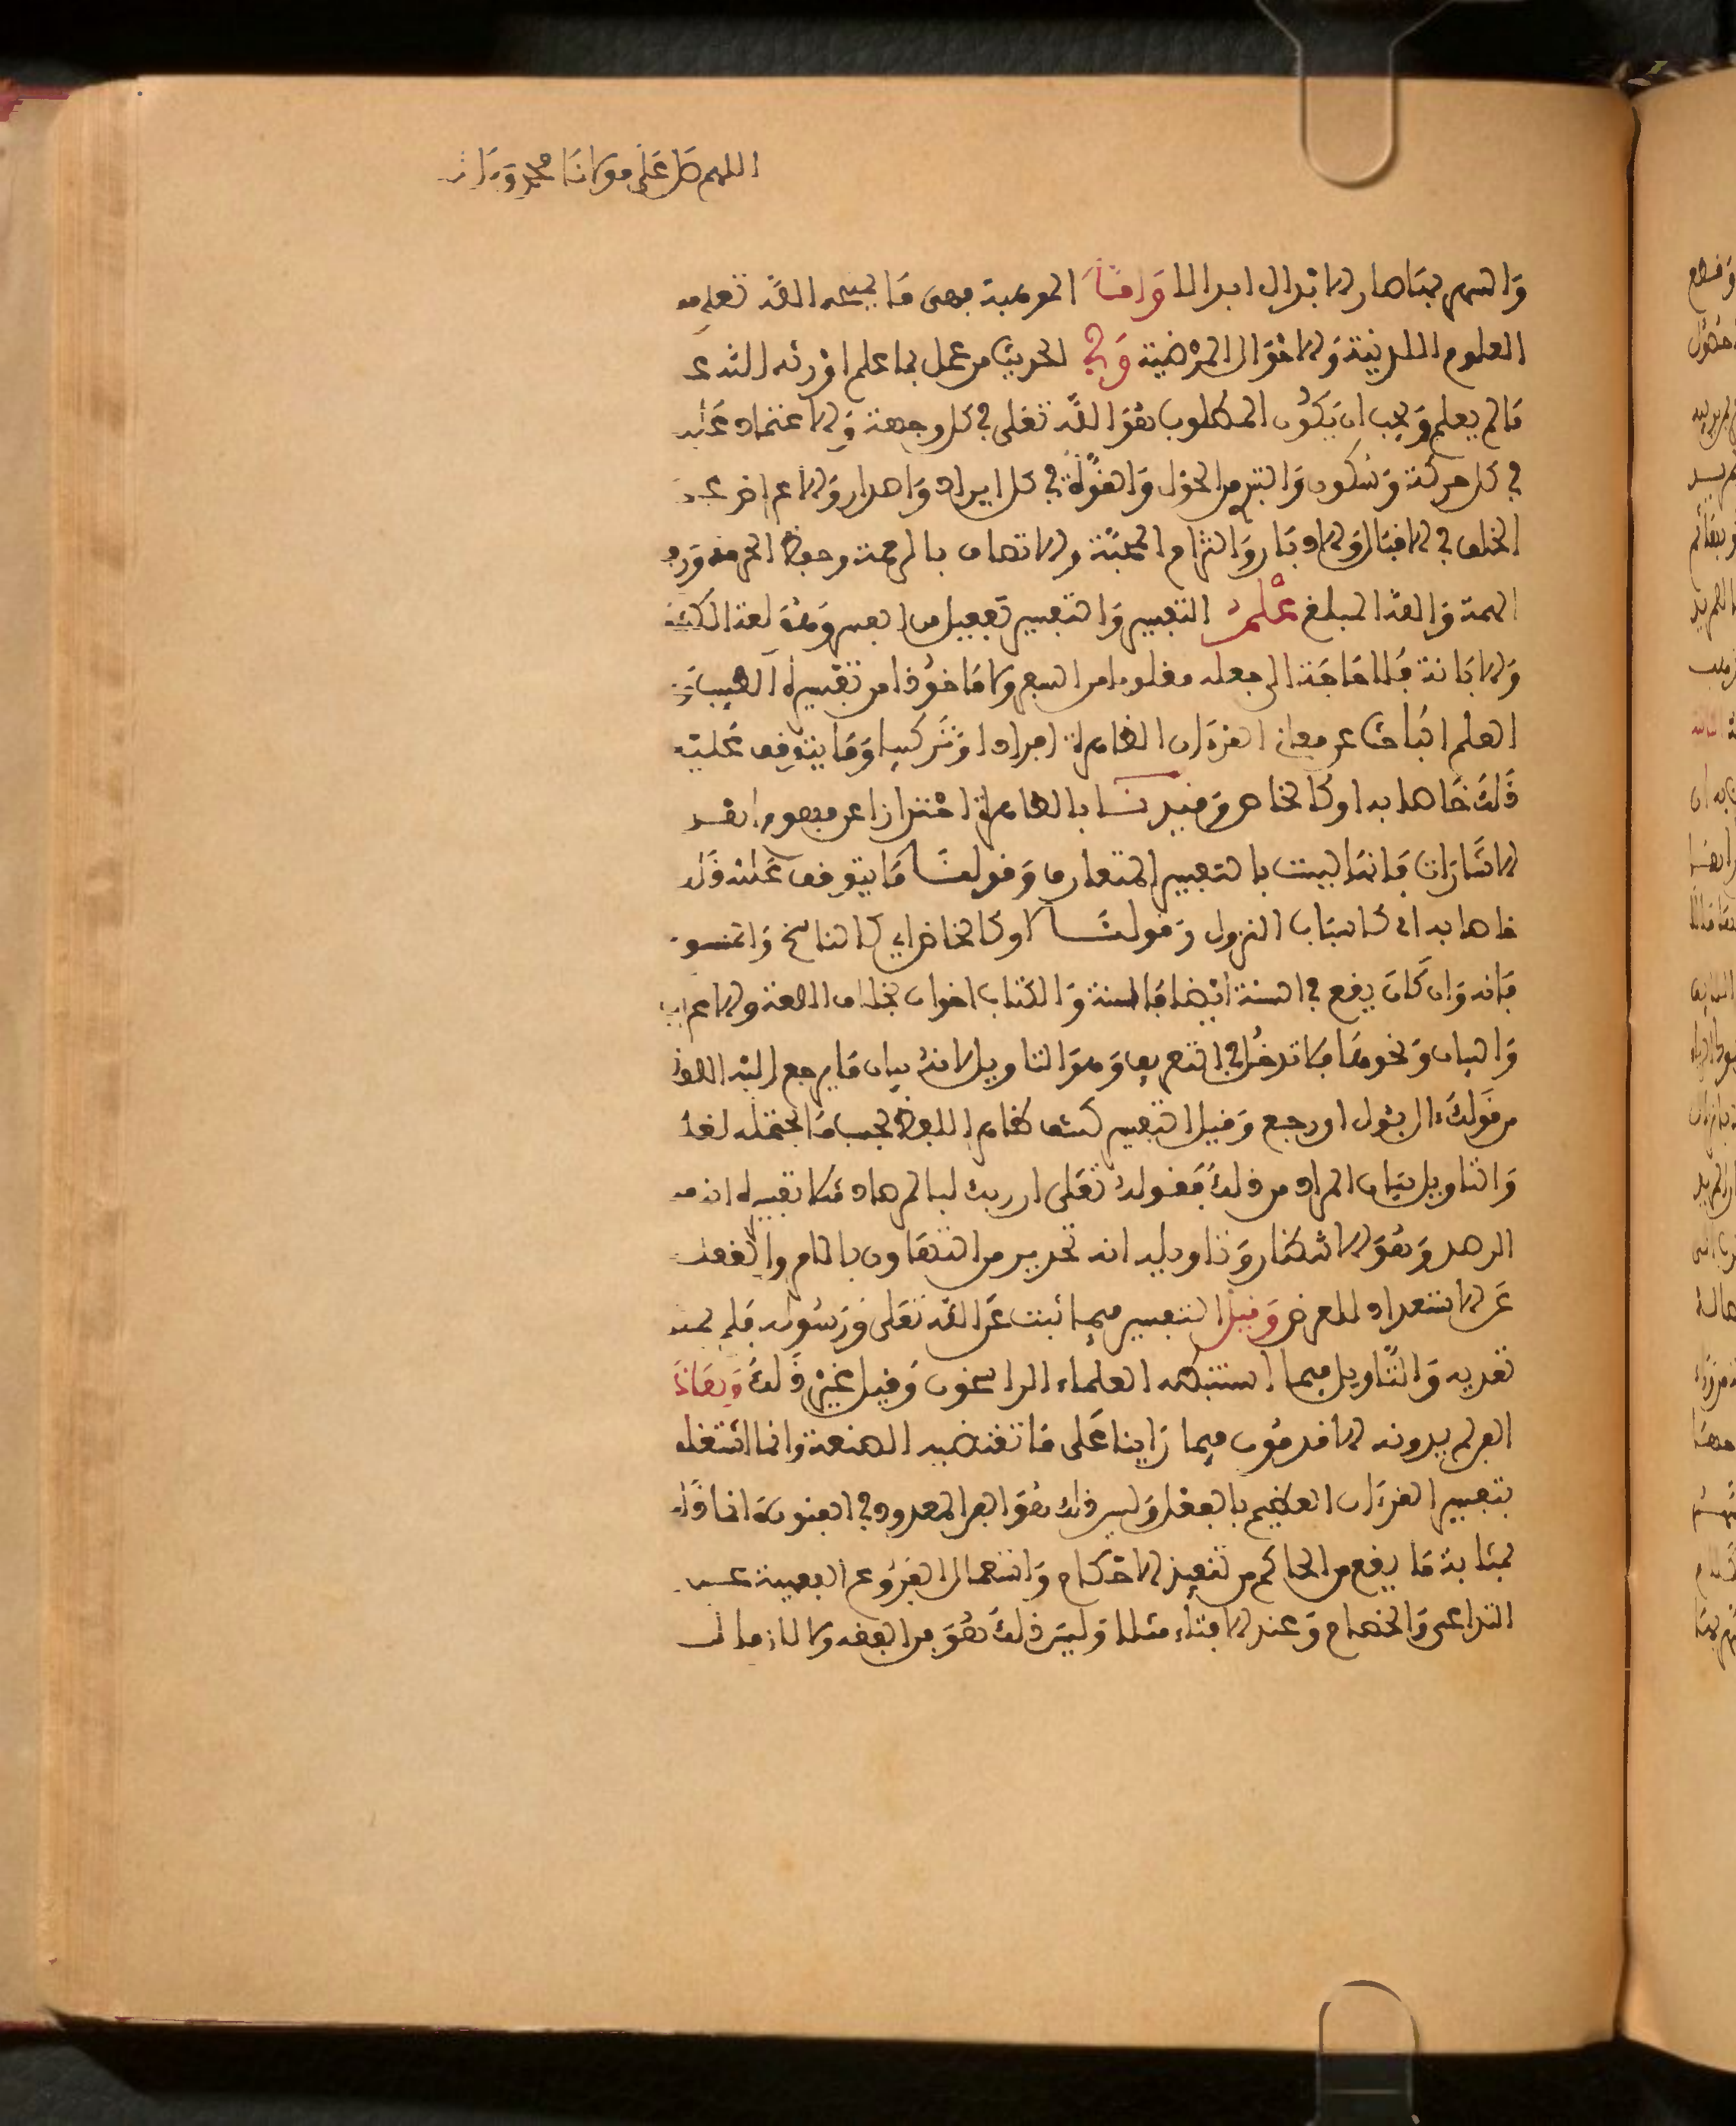 اللهم صل على مولانا محمد وءال
والسهم بيتا صار الابدال ابدالا واما الموهبية فهى ما يمنحه الله تعلى من
العلوم اللدنية والاحوال المرضية وفى الحديث من عمل بما علم اورثه الله علم
ما لم يعلم ويجب ان يكون المطلوب هو الله تعلى فى كل وجهة والاعتماد عليه
فى كل حركة وسكون والتبرى من الحول والقوة فى كل ايراد واصدار والاعراض عن
الخلق فى الاقبال والادبار والتزام المحبة والاتصاف بالرحمة وحفظ الحرمة ورفع
الهمة والله المبلغ علم التفسير والتفسير تفعيل من الفسر وهو لغة الكشف
والابانة فلا حاجة الى جعله مقلوبا من السفر ولا ماخوذا من تفسرة الطبيب
العلم الباحث عن معانى القرءان الظاهرة افرادا وتركيبا وما يتوقف عليه
ذلك خاصا به او كالخاص وقيدنا بالظاهرة احترازا عن مفهوم اهل
الاشارات فانها ليست بالتفسير المتعارف وقولنا ما يتوقف عليه ذلك
خاصا به اى كاسباب النزول وقولنا او كالخاص اى كالناسخ والمنسوخ
فانه وان كان يقع فى السنة ايضا فالسنة والكتاب اخوان بخلاف اللغة والاعراب
والبيان ونحوها فلا تدخل فى التعريف وهو التاويل لانه بيان ما يرجع اليه اللفظ
من قولك ءال يئول اى رجع وقيل التفسير كشف ظاهر اللفظ بحسب ما يحتمله لغة
والتاويل بيان المراد من ذلك فقوله تعلى ان ربك لبالمرصاد مثلا تفسيره انه من
الرصد وهو الانتظار وتاويله انه تحذير من التهاون بالامر والغفلة
عن الاستعداد للعرض وقيل التفسير فيما ثبت عن الله تعلى ورسوله فلم يجز
تعديه والتاويل فيما استنبطه العلماء الراسخون وقيل غير ذلك وهاذا
الفن لم يدونه الاقدمون فيما راينا على ما تقتضيه الصنعة وانما اشتغلوا
بتفسير القرءان العظيم بالفعل وليس ذلك هو الفن المعدود فى الفنون وانما ذلك
بمثابة ما يقع من الحاكم من تنفيذ الاحكام واستعمال الفروع الفقهية عند
التداعى والخصام وعند الافتاء مثلا وليس ذلك هو فن الفقه ولا